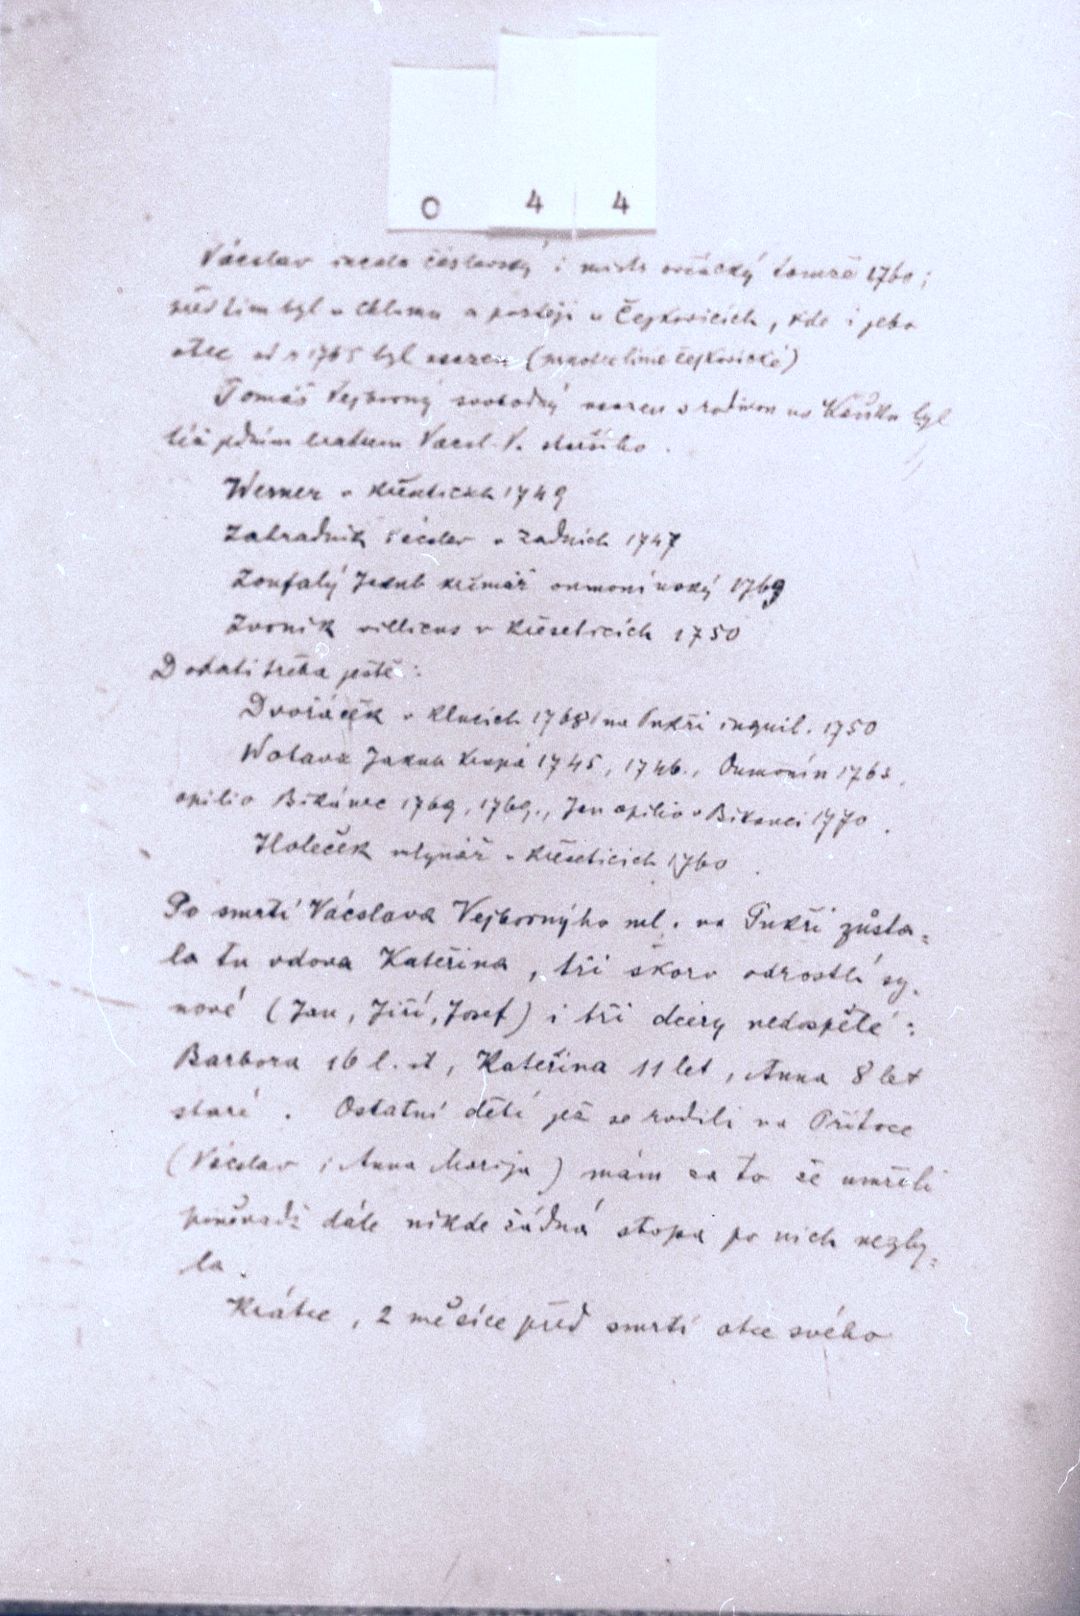 0 4 4
Václav incola čáslavský i mistr ovčácký tamže 1760;
před tím byl v Chlumu a později v Čejkovicích, kde i jeho
otec od r 1765 byl usazen (praotec linie čejkovické)
Tomáš Vejborný svobodný usazen s rodinou na byl
též jedním bratrem Vácsl. V. staršího.
Werner v Křeseticích 1749
Zahradník v Zadních 1747
Zoufalý Jakub krčmář onmonínský 1769
Zvoník villicus v Křeseticích 1750
Dodati třeba ještě:
Dvořáček v Klucích 1768 na Pukři inquil. 1750
Wotava Jakub 1745, 1746., Onmonín 1763,
opilio Bikánec 1769, 1769., Jan opilio v Bikanci 1770.
Holeček mlynář v Křeseticích 1760
Po smrti Vácslava Vejborného ml. na Pukři zůsta-
la tu vdova Kateřina, tři skoro odrostlí sy-
nové (Jan, Jiří, Josef) i tři dcery nedospělé:
Barbora 16 l. st, Kateřina 11 let, Anna 8 let
staré. Ostatní dětí jež se rodili na Přítoce
(Vácslav i Anna Marija) mám za to že umřeli
poněvadž dále nikde žádná stopa po nich nezby-
la.
Krátce, 2 měsíce před smrtí otce svého